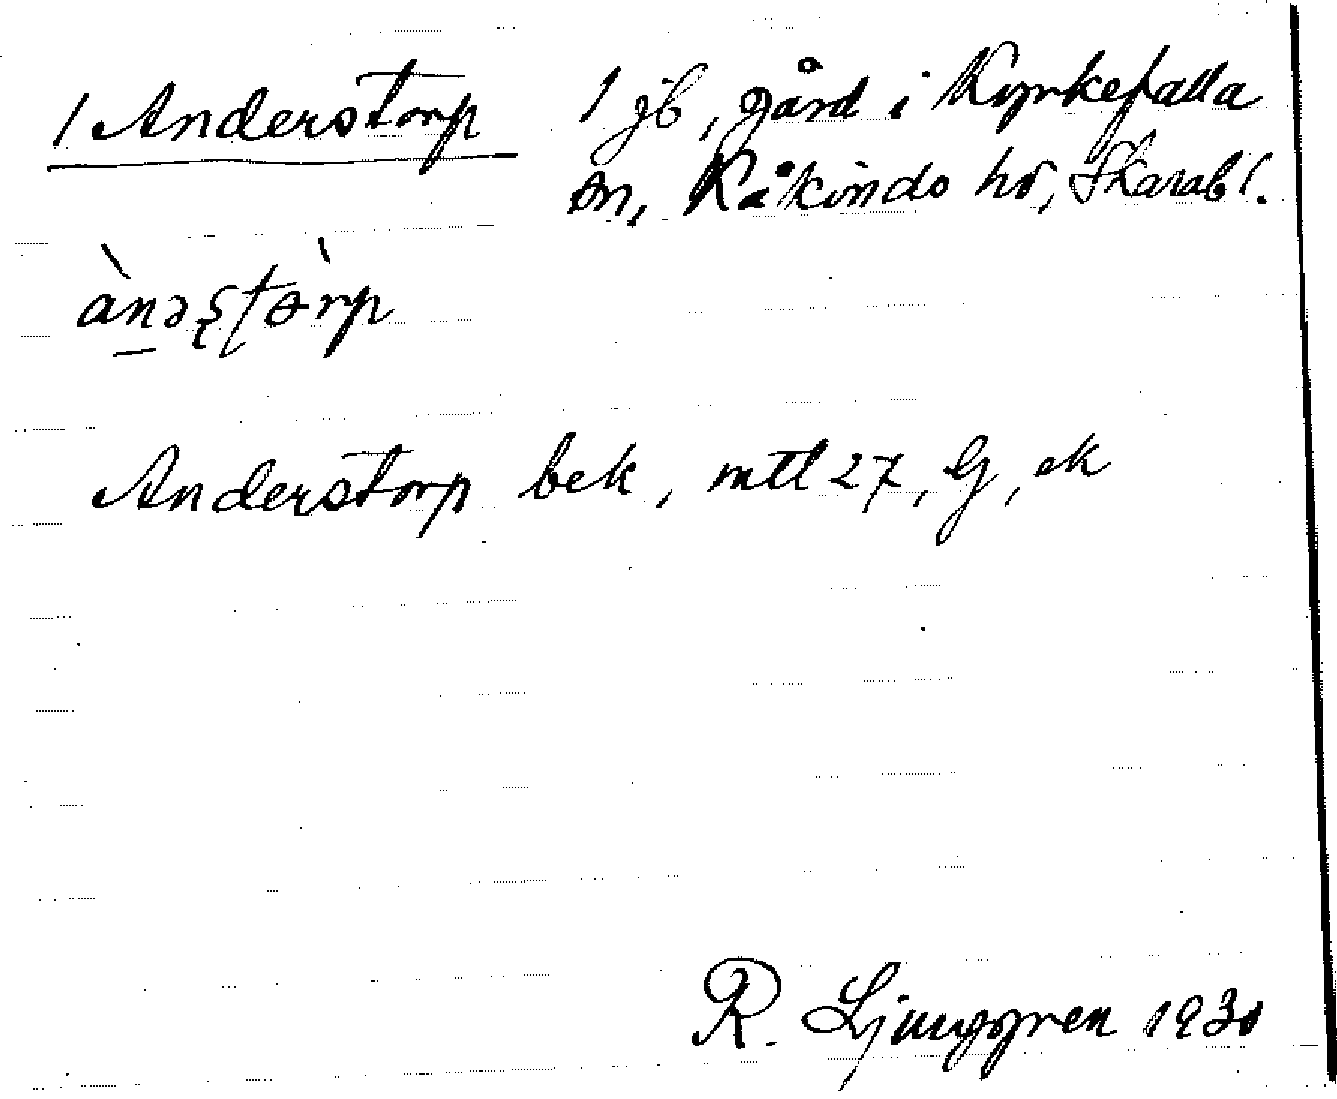 1 Anderstorp 1 jb, gård i Kyrkefalla
sn, Kåkinds hd, Skarab l.
Anderstorp bek, mtl 27, G, ek
R. Ljunggren 1930